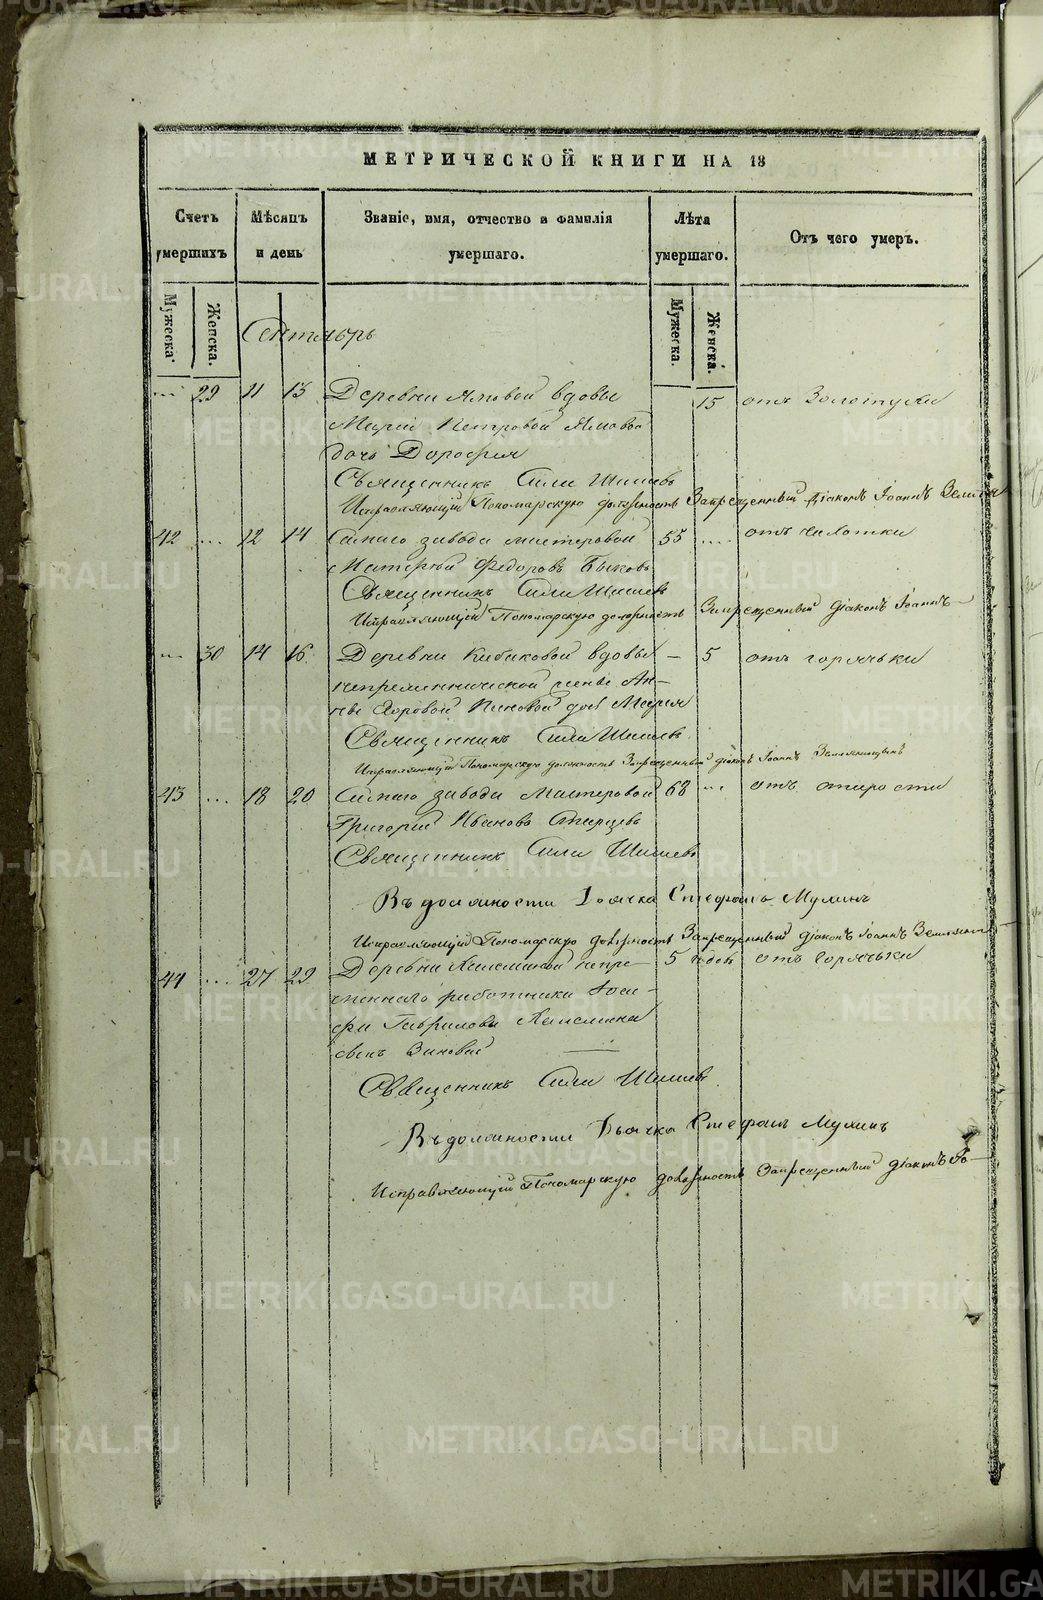 МЕТРИЧЕСКОЙ КНИГИ НА 18
Счетъ умершихъ
Мѣсяцъ и день
Званіе, имя, отчество и фамилія умершаго.
Лѣта умершаго.
Отъ чего умеръ.
Мужеска.
Женска.
Мужеска.
Женска.
Сентябрь
... 29 11 13 Деревни Ямовой вдовы 15 отъ Золотухи
Маріи Петровой Ямовой
дочь Дорофея
Священникъ Сила Шишевъ
Исправляющій Пономарскую должность Запрещенный Діаконъ Іоаннъ
42 ... 12 14 Самаго завода мастеровой 55 .... отъ чахотки
Федоровъ Быковъ
Священникъ Сила Шишевъ
Исправляющій Пономарскую должность Запрещенный діаконъ Іоаннъ
... 30 14 16 Деревни вдовы — 5 отъ горячьки
Ан-
ны дочь Марія
Священникъ Сила Шишевъ
Исправляющій Пономарскую должность Запрещенный діаконъ Іоаннъ Земляницынъ
43 ... 18 20 Самаго завода Мастеровой 68 ... отъ старости
Григорій Ивановъ Старцевъ
Священникъ Сила Шишевъ
Въ должности Дьячка Стефанъ Мулинъ
Исправляющій Пономарскую должность Запрещенный діаконъ Іоаннъ
44 ... 27 29 Деревни непре- 5 отъ Горячьки
меннаго работника Іоси-
фа Гаврилова
сынъ Зиновій
Священникъ Сила Шишевъ
Въ должности Дьячка Стефанъ Мулинъ
Исправляющій Пономарскую должность Запрещенный діаконъ Іо-
METRIKI.GASO-URAL.RU